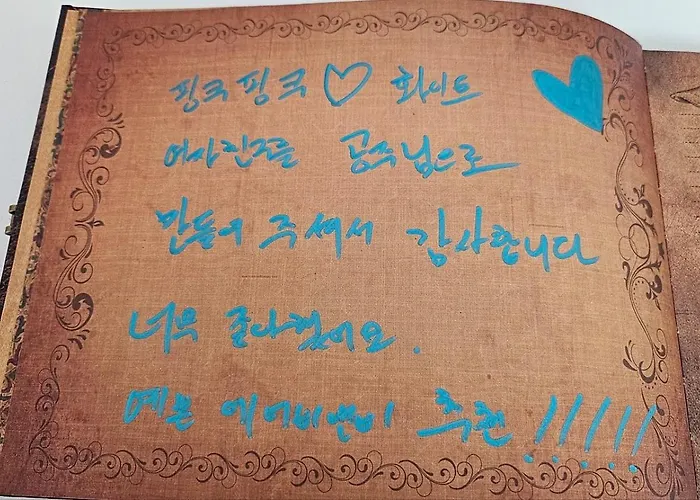 핑크핑크 ♡ 화이트
여자 공주님으로
만들어 주셔서 감사합니다
너무 좋아했어요.
예쁜 에어비앤비 추천!!!!!